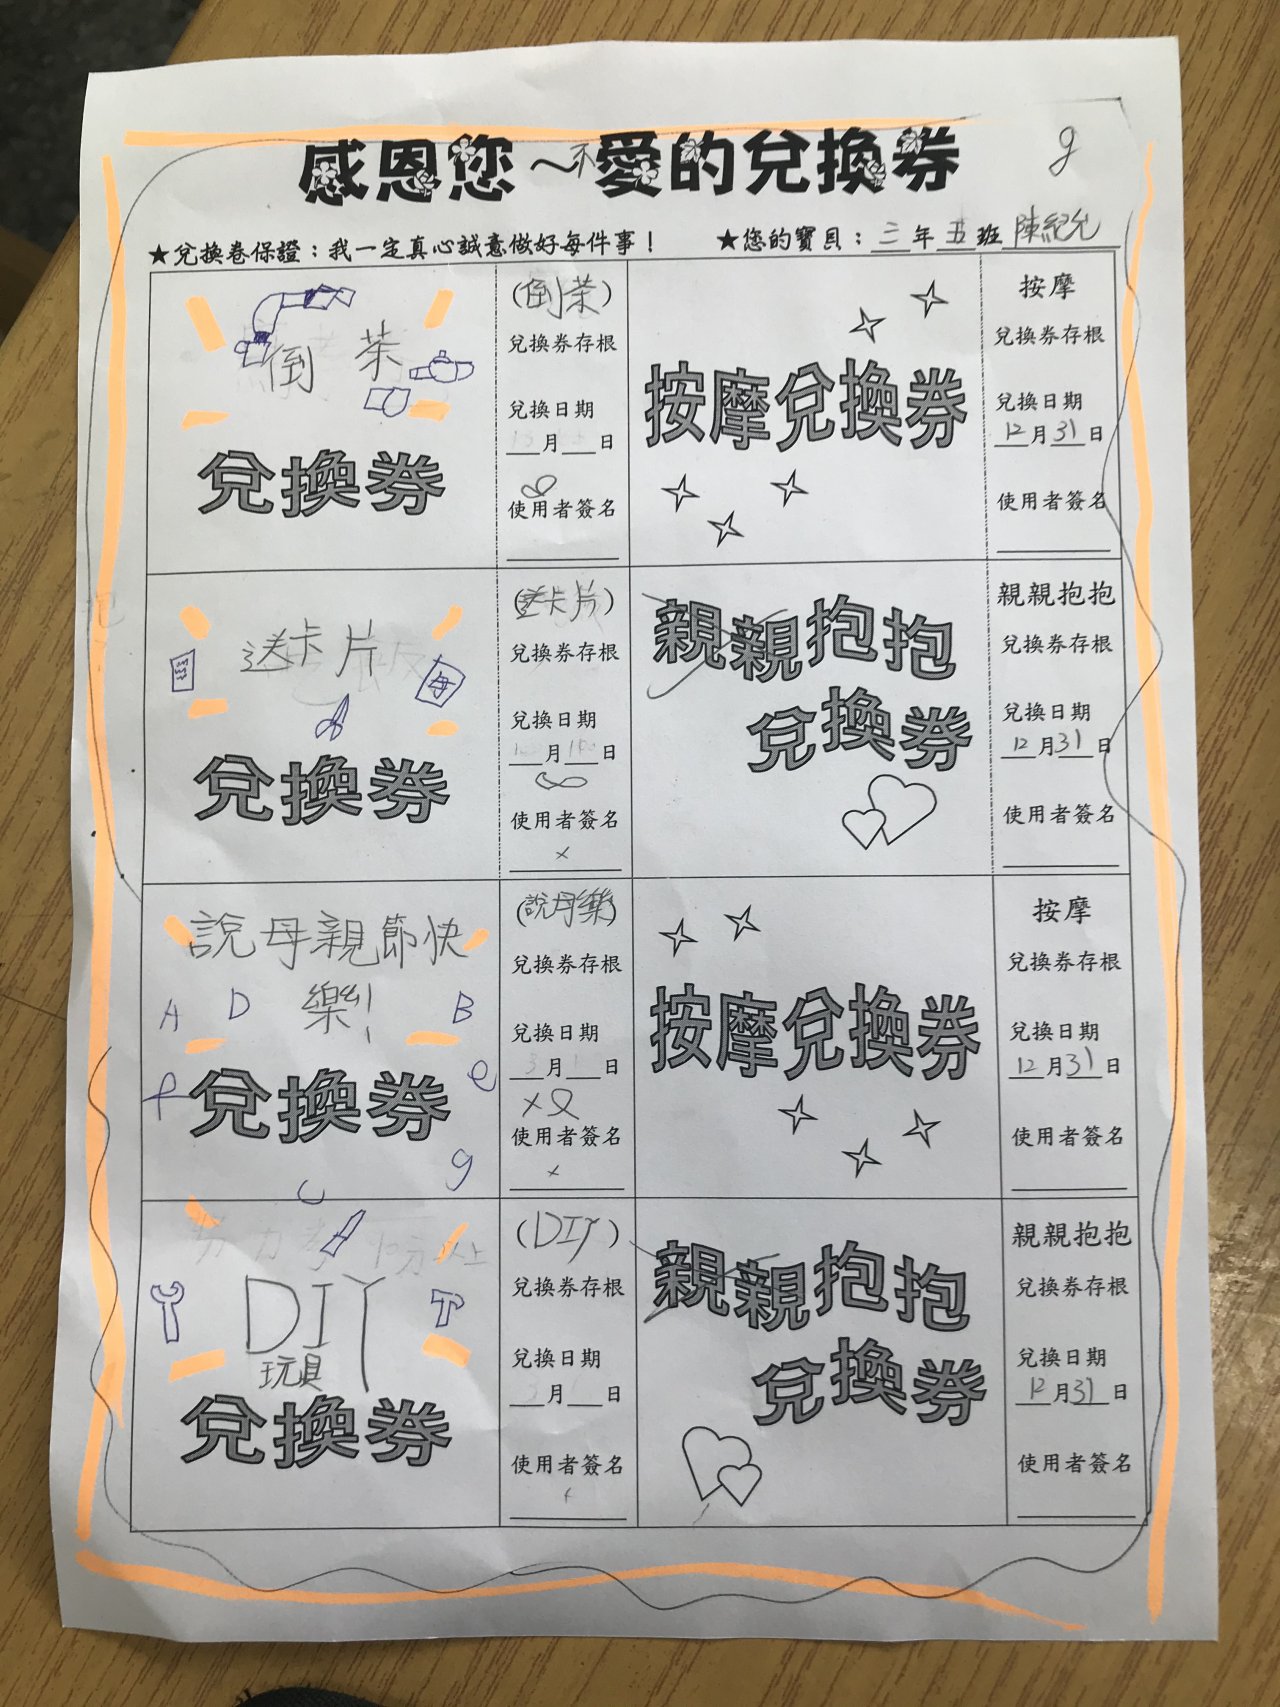 感恩您～不愛的兌換券
g
★兌換卷保證：我一定真心誠意做好每件事！ ★您的寶貝：三年五班陳紀允
倒茶
兌換券
(倒茶)
兌換券存根
兌換日期
月 日
使用者簽名
按摩兌換券
按摩
兌換券存根
兌換日期
12月31日
使用者簽名
送卡片
兌換券
(送卡片)
兌換券存根
兌換日期
月 日
使用者簽名
x
親親抱抱
兌換券
親親抱抱
兌換券存根
兌換日期
12月31日
使用者簽名
說母親節快
樂!
A D B
f e
兌換券
g
c
(說母樂)
兌換券存根
兌換日期
3月1日
x
使用者簽名
x
按摩兌換券
按摩
兌換券存根
兌換日期
12月31日
使用者簽名
DIY
玩具
兌換券
(DIY)
兌換券存根
兌換日期
月 日
使用者簽名
x
親親抱抱
兌換券
親親抱抱
兌換券存根
兌換日期
12月31日
使用者簽名